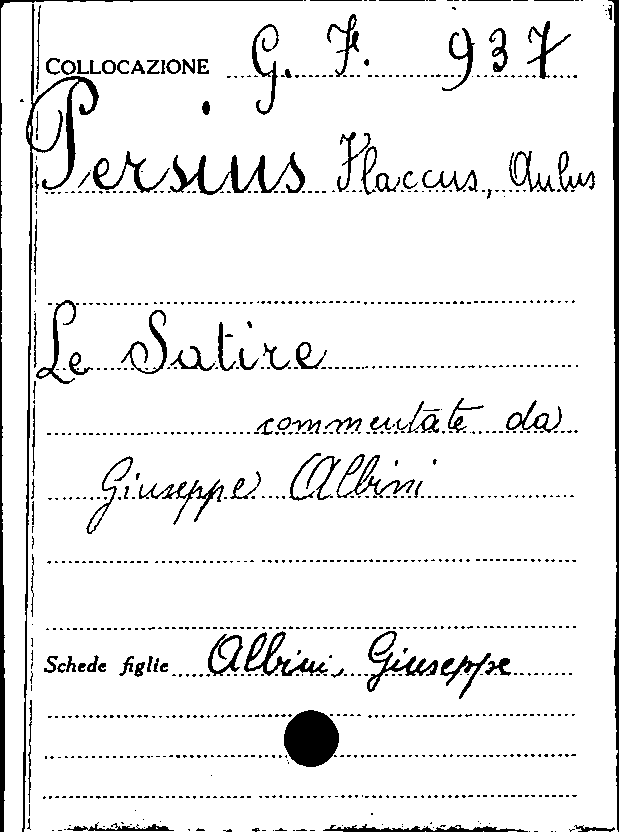 COLLOCAZIONE G. F. 937
Persius Flaccus, Aulus
Le Satire
commentate da
Giuseppe Albini
Schede figlie Albini, Giuseppe